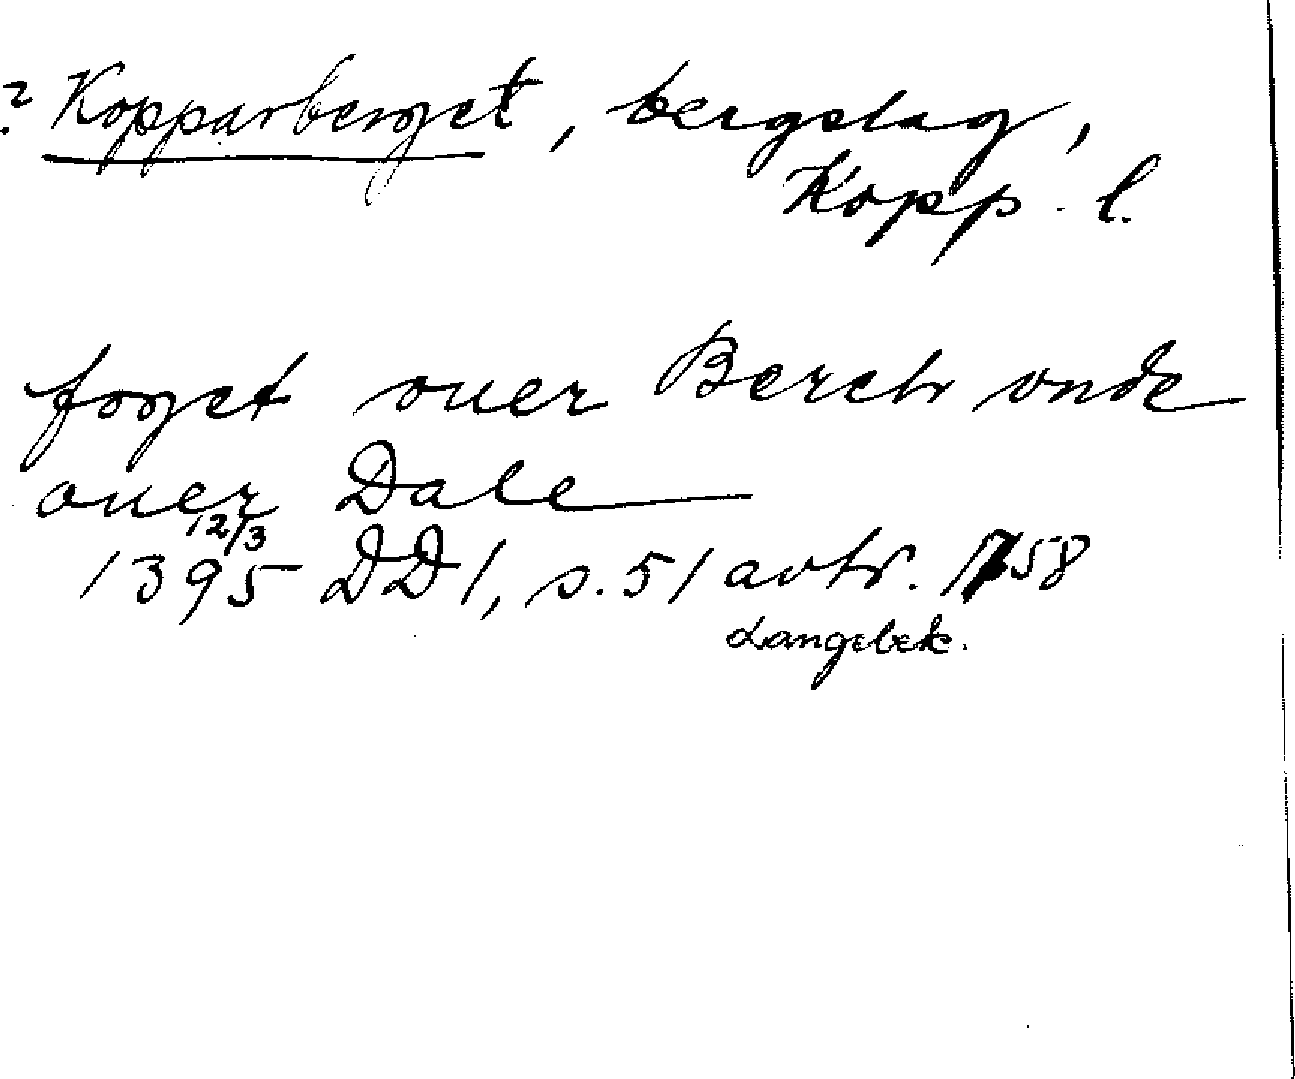 ? Kopparberget, bergslag,
Kopp. l.
foget ouer Berch vnde
ouer Dale
12/3
1395 DD1, s. 51 avtr. 1758
Langebek.